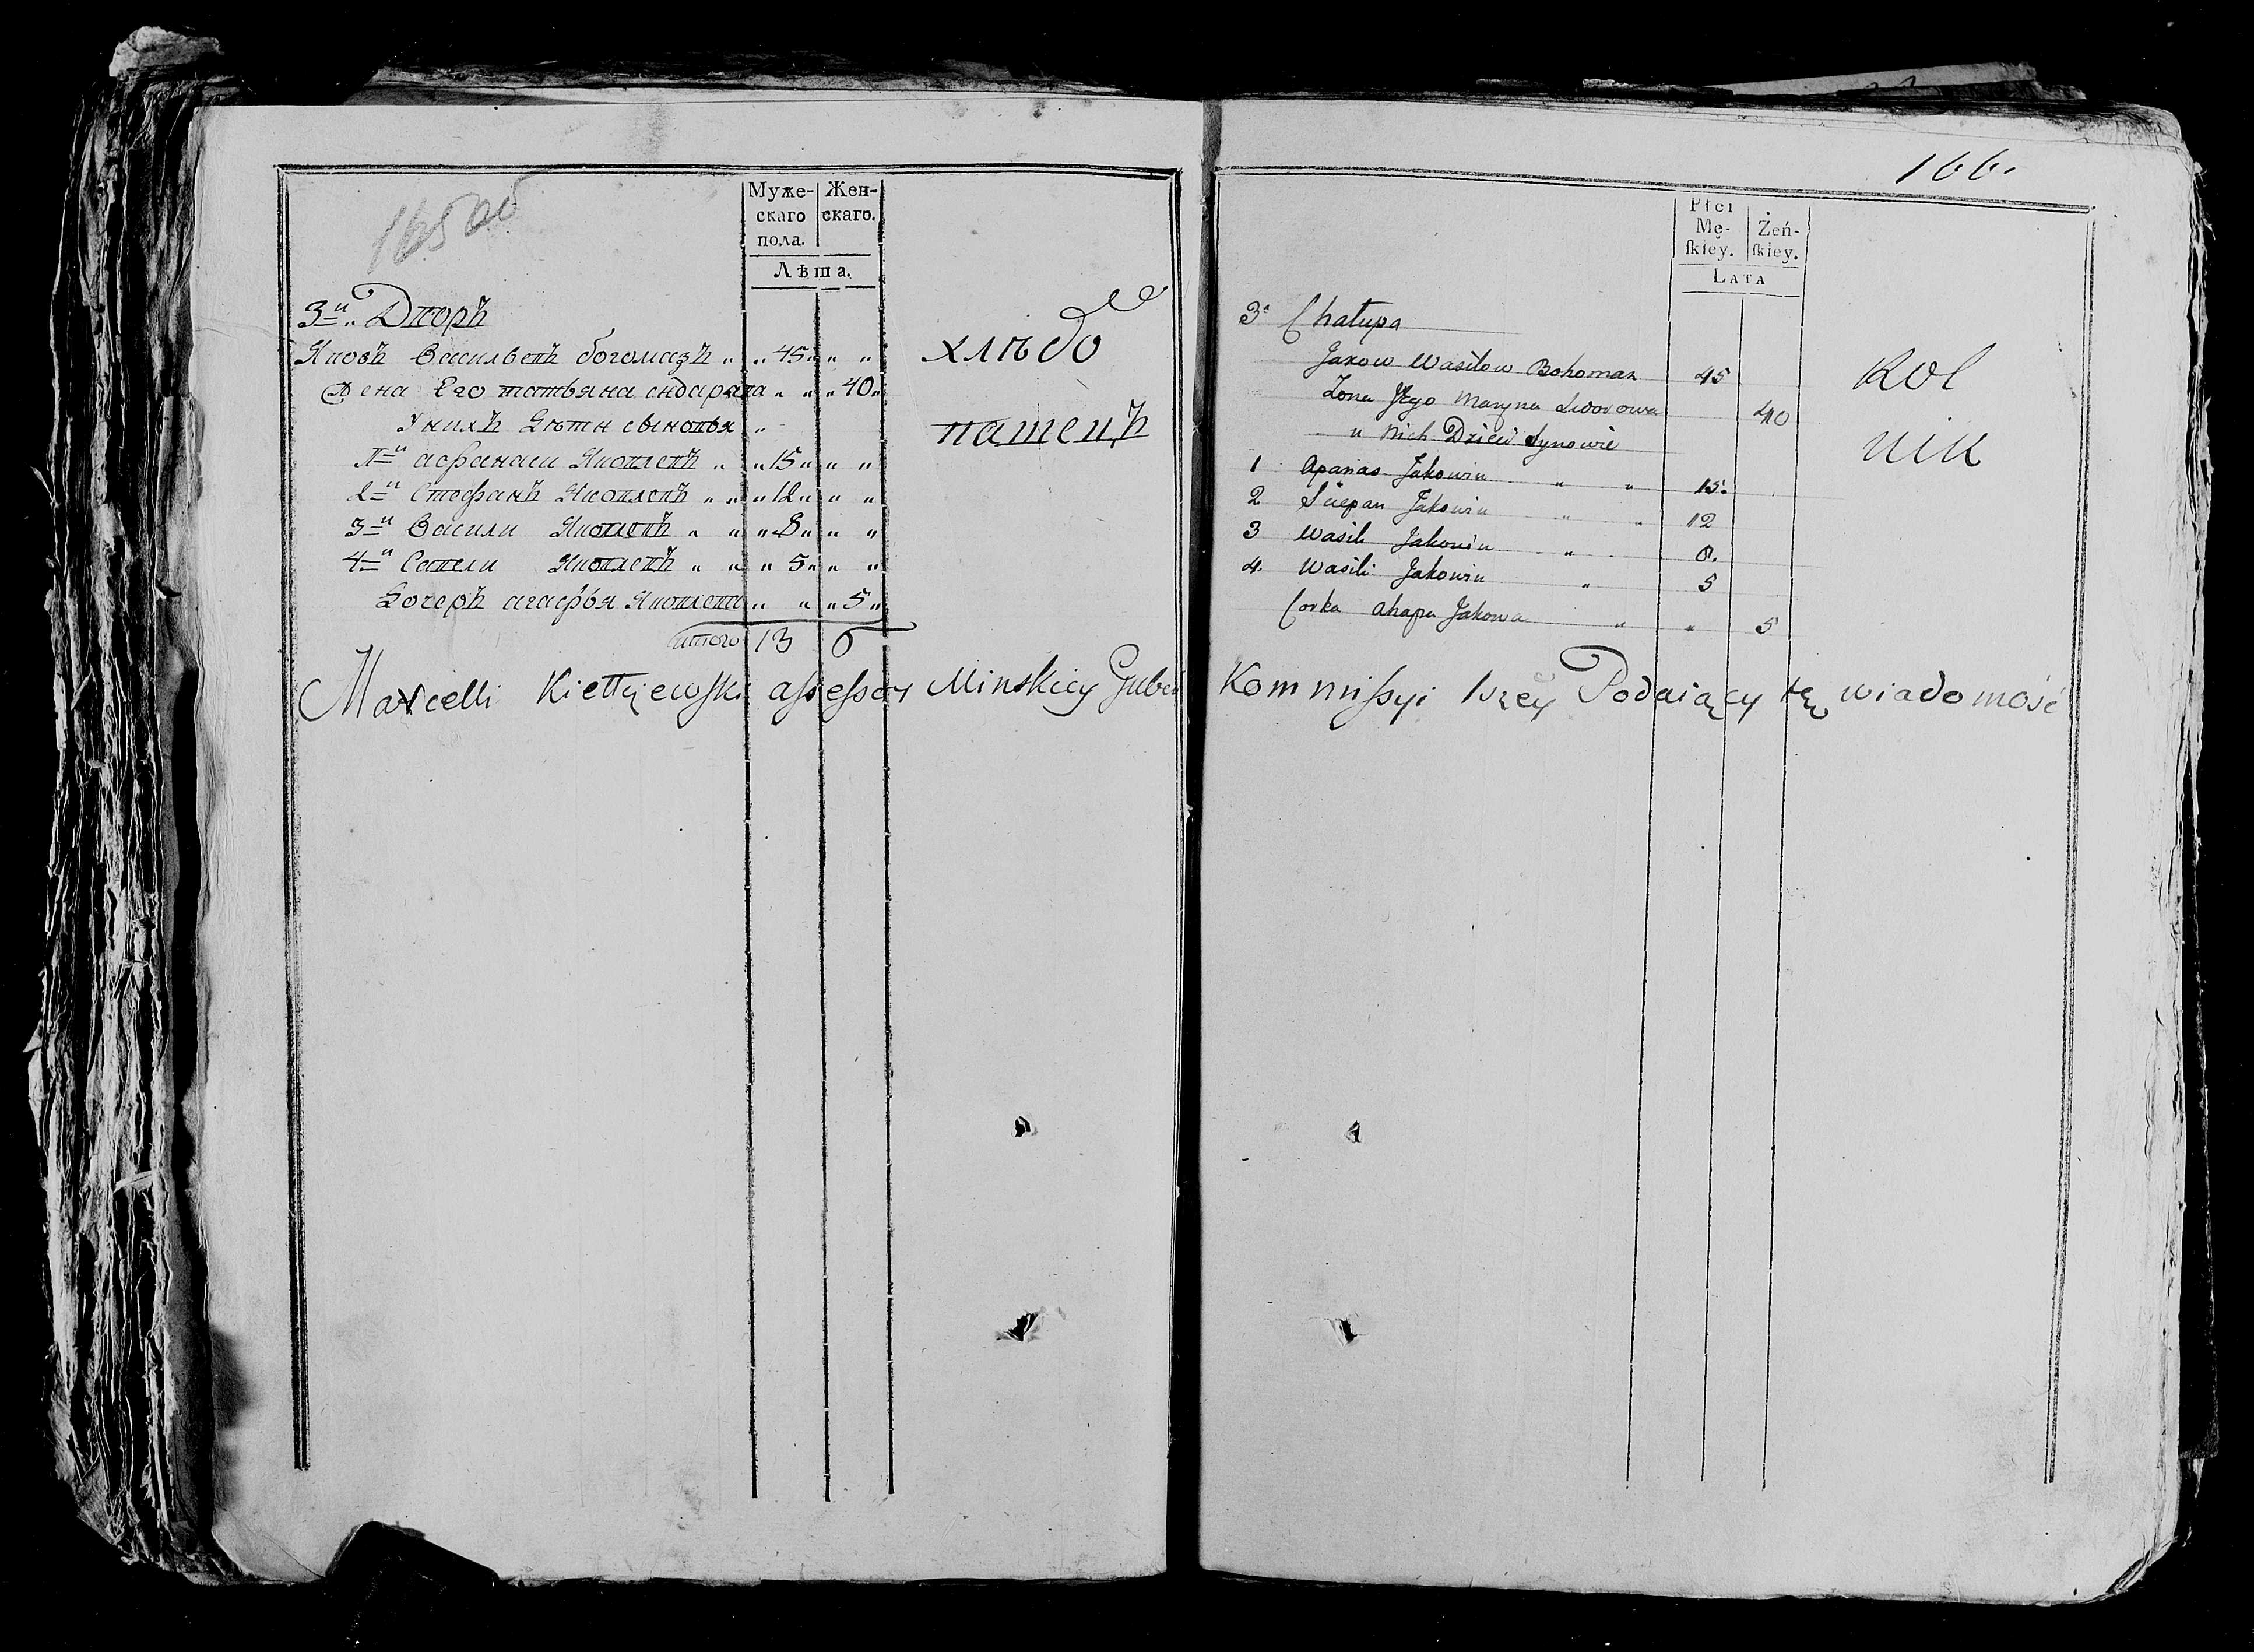 165 об
Муже-
скаго
пола.
Жен-
скаго.
Лѣта.
3й Дворъ
Яковъ Васильевъ богомазъ „ „ 45 „ „ „
Жена Его татьяна сидарава „ „ „ 40 „
У нихъ Дѣти сыновья „
1й афанаси Яковлевъ „ „ 15 „ „ „
2й Стефанъ Яковлевъ „ „ „ 12 „ „ „
3й Васили Яковлевъ „ „ „ 8 „ „ „
4й Савели Яковлевъ „ „ „ 5 „ „ „
Дочерь агафья Яковлева „ „ „ 5 „
итого 13 6
хлѣбо
пашецъ
166.
Płci
Mę-
ſkiey.
Żeń-
ſkiey.
LATA
3a Chałupa
Jakow Wasilow Bohomaz 45
Żona Jego Maryna Sidorowa 40
u Nich Dzieci Synowie
1 Apanas Jakowiu „ „ 15.
2 Sciepan Jakowiu „ „ 12
3 Wasili Jakowiu „ 8.
4. Wasili Jakowiu „ 5
Corka Ahapa Jakowa „ „ 5
Rol
nik
Marcelli assessor Minskiey Guber Kommissyi 1szey Podaiący tę wiadomość